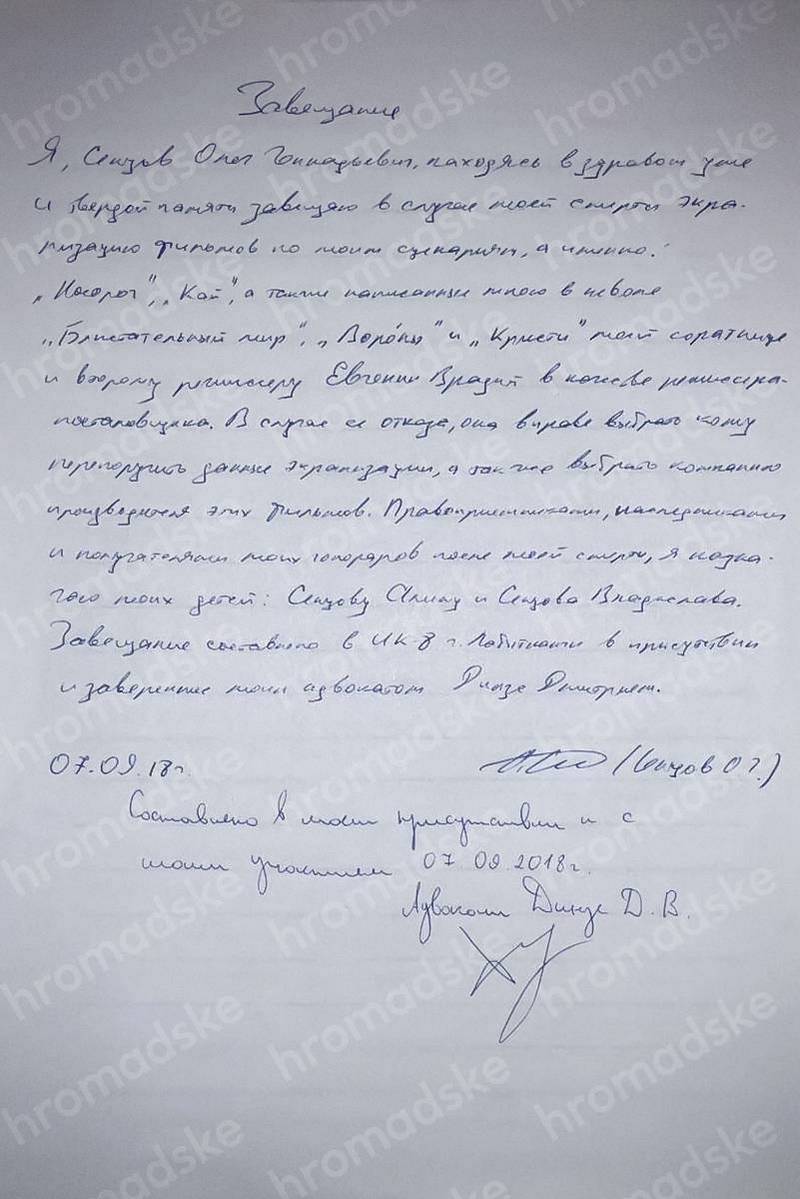 Завещание
Я, Сенцов Олег Геннадьевич, находясь в здравом уме
и твердой памяти завещаю в случае моей смерти экра-
низацию фильмов по моим сценариям, а именно:
„Носорог", „Кай", а также написанные мною в неволе
„Блистательный мир", „Воро́ны" и „Кристи" моей соратнице
и второму режиссеру Евгении Врадий в качестве режиссера-
постановщика. В случае ее отказа, она вправе выбрать кому
перепоручить данные экранизации, а так же выбрать компанию
производителя этих фильмов. Правоприемниками, наследниками
и получателями моих гонораров после моей смерти, я назна-
чаю моих детей: Сенцову Алину и Сенцова Владислава.
Завещание составлено в ИК-8 г. Лабытнанги в присутствии
и заверенные моим адвокатом Динзе Дмитрием.
07.09.18г. (Сенцов О Г.)
Составлено в моем присутствии и с
моим участием 07 09 2018г.
Адвокат Динзе Д. В.
hromadske